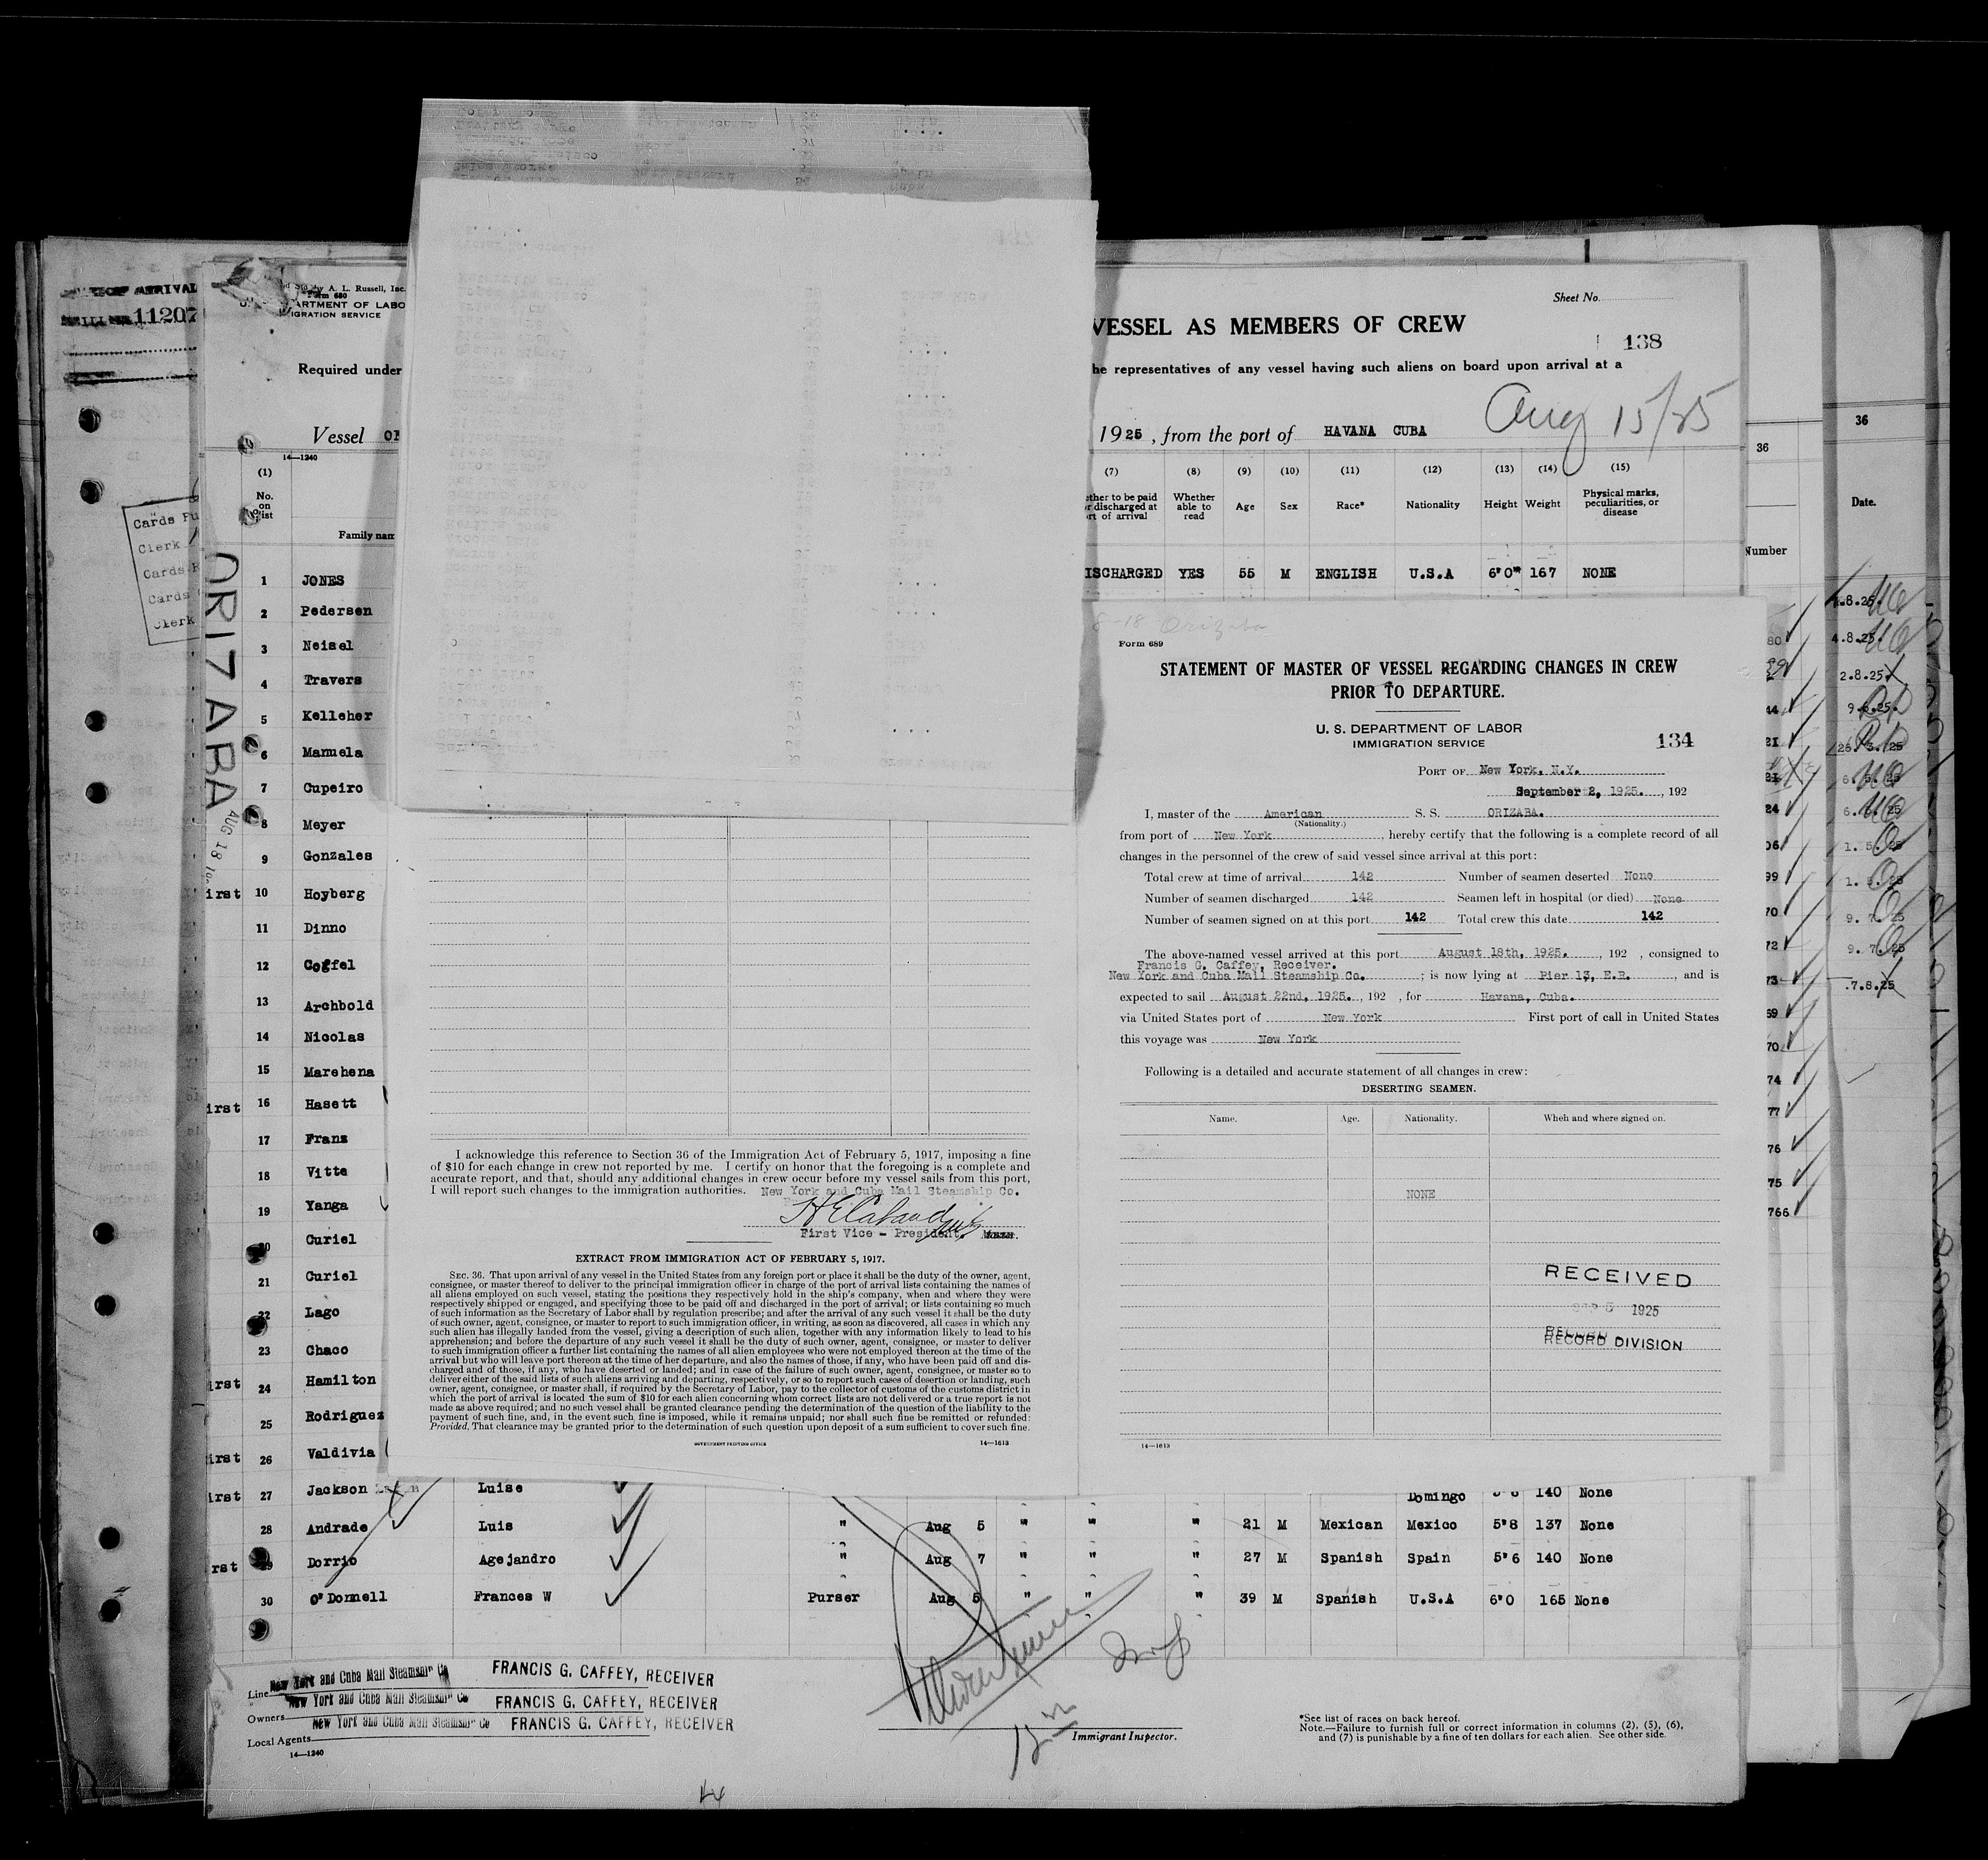 11207
Cards Fu
Clerk
Cards R
Cards
Clerk
ORIZABA
AUG 18
y A. L. Russell, Inc.
Form 680
ARTMENT OF LABO
IGRATION SERVICE
Required under
Vessel
14—1240
(1)
No. on list
Family nam
1 JONES
2 Pedersen
3 Neisel
4 Travers
5 Kelleher
6 Mamela
7 Cupeiro
8 Meyer
9 Gonzales
irst 10 Hoyberg
11 Dinno
12 Coffel
13 Archbold
14 Nicolas
15 Marehena
irst 16 Hasett
17 Frans
18 Vitte
19 Yanga
20 Curiel
21 Curiel
22 Lago
23 Chaco
irst 24 Hamilton
25 Rodriguez
irst 26 Valdivia
irst 27 Jackson Luise Domingo 140 None
28 Andrade Luis " Aug 5 " " " 21 M Mexican Mexico 5'8 137 None
rst 29 Dorrio Agejandro " Aug 7 " " " 27 M Spanish Spain 5'6 140 None
30 O'Donnell Frances W Purser Aug 5 " " " 39 M Spanish U.S.A 6'0 165 None
Line New York and Cuba Mail Steamship Co FRANCIS G. CAFFEY, RECEIVER
Owners New York and Cuba Mail Steamship Co FRANCIS G. CAFFEY, RECEIVER
Local Agents New York and Cuba Mail Steamship Co FRANCIS G. CAFFEY, RECEIVER
14—1240
Immigrant Inspector.
*See list of races on back hereof.
Note.—Failure to furnish full or correct information in columns (2), (5), (6),
and (7) is punishable by a fine of ten dollars for each alien. See other side.
Sheet No.
VESSEL AS MEMBERS OF CREW
138
he representatives of any vessel having such aliens on board upon arrival at a
Aug 15/25
1925, from the port of HAVANA CUBA
(7) (8) (9) (10) (11) (12) (13) (14) (15)
ether to be paid
r discharged at
rt of arrival
Whether able to read
Age
Sex
Race*
Nationality
Height
Weight
Physical marks, peculiarities, or disease
ISCHARGED YES 55 M ENGLISH U.S.A 6'0" 167 NONE
I acknowledge this reference to Section 36 of the Immigration Act of February 5, 1917, imposing a fine
of $10 for each change in crew not reported by me. I certify on honor that the foregoing is a complete and
accurate report, and that, should any additional changes in crew occur before my vessel sails from this port,
I will report such changes to the immigration authorities. New York and Cuba Mail Steamship Co.
First Vice - President.
EXTRACT FROM IMMIGRATION ACT OF FEBRUARY 5, 1917.
SEC. 36. That upon arrival of any vessel in the United States from any foreign port or place it shall be the duty of the owner, agent,
consignee, or master thereof to deliver to the principal immigration officer in charge of the port of arrival lists containing the names of
all aliens employed on such vessel, stating the positions they respectively hold in the ship's company, when and where they were
respectively shipped or engaged, and specifying those to be paid off and discharged in the port of arrival; or lists containing so much
of such information as the Secretary of Labor shall by regulation prescribe; and after the arrival of any such vessel it shall be the duty
of such owner, agent, consignee, or master to report to such immigration officer, in writing, as soon as discovered, all cases in which any
such alien has illegally landed from the vessel, giving a description of such alien, together with any information likely to lead to his
apprehension; and before the departure of any such vessel it shall be the duty of such owner, agent, consignee, or master to deliver
to such immigration officer a further list containing the names of all alien employees who were not employed thereon at the time of the
arrival but who will leave port thereon at the time of her departure, and also the names of those, if any, who have been paid off and dis-
charged and of those, if any, who have deserted or landed; and in case of the failure of such owner, agent, consignee, or master so to
deliver either of the said lists of such aliens arriving and departing, respectively, or so to report such cases of desertion or landing, such
owner, agent, consignee, or master shall, if required by the Secretary of Labor, pay to the collector of customs of the customs district in
which the port of arrival is located the sum of $10 for each alien concerning whom correct lists are not delivered or a true report is not
made as above required; and no such vessel shall be granted clearance pending the determination of the question of the liability to the
payment of such fine, and, in the event such fine is imposed, while it remains unpaid; nor shall such fine be remitted or refunded:
Provided, That clearance may be granted prior to the determination of such question upon deposit of a sum sufficient to cover such fine.
GOVERNMENT PRINTING OFFICE 14—1613
8-18 Orizaba
Form 689
STATEMENT OF MASTER OF VESSEL REGARDING CHANGES IN CREW
PRIOR TO DEPARTURE.
U. S. DEPARTMENT OF LABOR
IMMIGRATION SERVICE
134
PORT OF New York, N.Y.
September 2, 1925., 192
I, master of the American S. S. ORIZABA.
(Nationality.)
from port of New York, hereby certify that the following is a complete record of all
changes in the personnel of the crew of said vessel since arrival at this port:
Total crew at time of arrival 142 Number of seamen deserted None
Number of seamen discharged 142 Seamen left in hospital (or died) None
Number of seamen signed on at this port 142 Total crew this date 142
The above-named vessel arrived at this port August 18th, 1925., 192 , consigned to
Francis G. Caffey, Receiver.
New York and Cuba Mail Steamship Co.; is now lying at Pier 13, E.R., and is
expected to sail August 22nd, 1925., 192 , for Havana, Cuba.
via United States port of New York First port of call in United States
this voyage was New York
Following is a detailed and accurate statement of all changes in crew:
DESERTING SEAMEN.
Name. Age. Nationality. When and where signed on.
NONE
RECEIVED
SEP 5 1925
RECORD DIVISION
14—1613
36
Number
80
44
21
24
06
99
70
72
73
59
70
74
77
76
75
766
36
Date.
4.8.25.
4.8.25
2.8.25
9.6.25.
26.3.25
6.5.25
6.6.25
1.5.25
1.5.25
9.7.25
9.7.25
.7.8.25